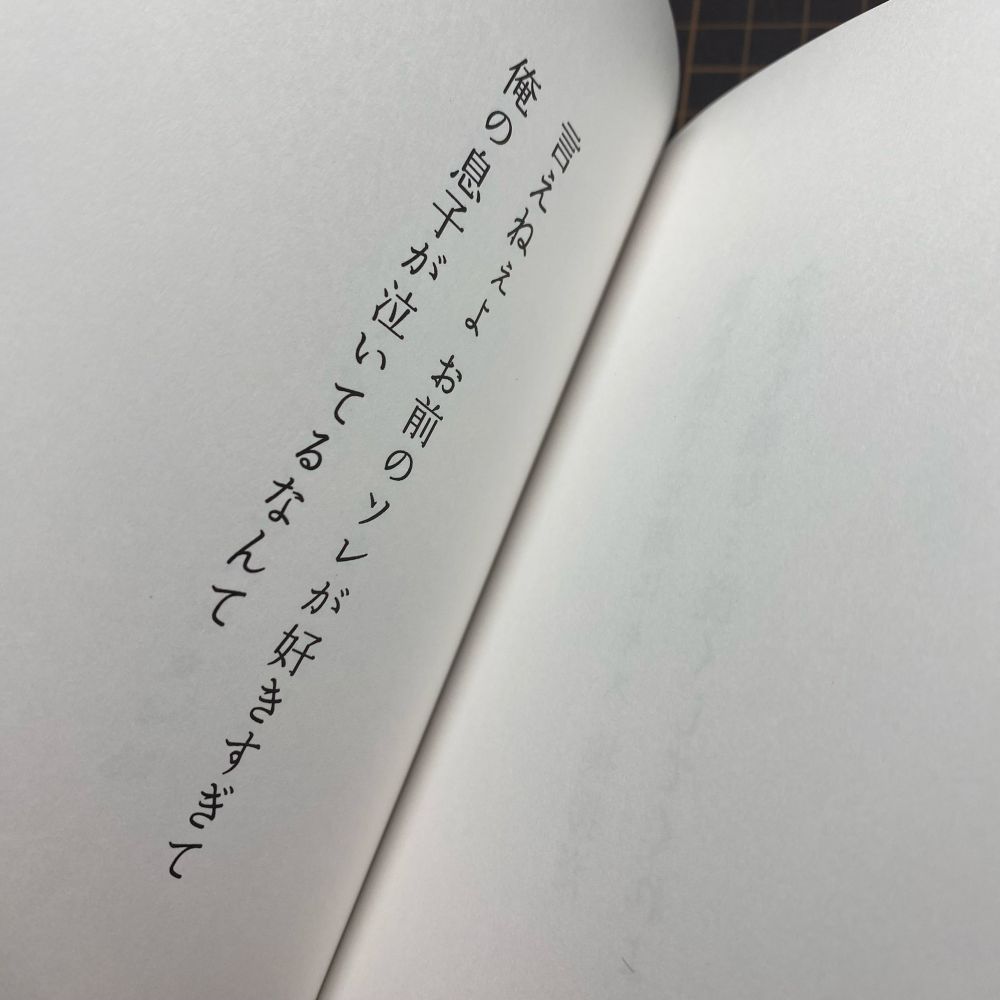 言えねぇよ お前のソレが好きすぎて
俺の息子が泣いてるなんて